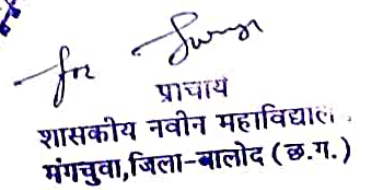 for
प्राचार्य
शासकीय नवीन महाविद्याल
मंगचुवा,जिला-बालोद (छ.ग.)